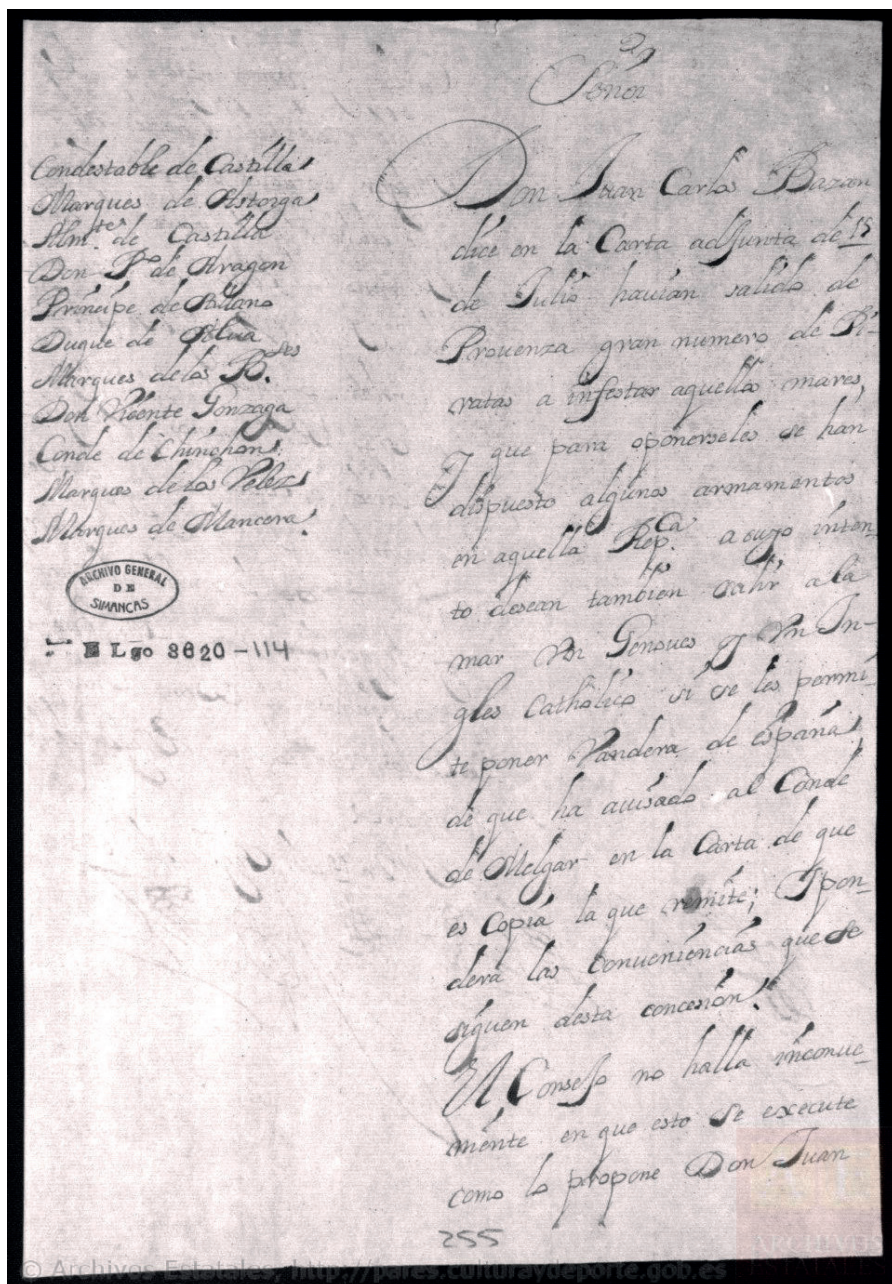 Señor
Condestable de Castilla
Marques de Astorga
Almte de Castilla
Don Po de Aragon
Príncipe de Astillano
Duque de Alua
Marques de los Bses
Don Vicente Gonzaga
Conde de Chinchon
Marques de los Velez
Marques de Mancera
ARCHIVO GENERAL
DE
SIMANCAS
E Lgo 3620-114
Don Juan Carlos Bazan
dice en la Carta adjunta de 15
de Julio hauian salido de
Prouenza gran numero de Pi-
ratas a infestar aquellos mares,
Y que para oponerseles se han
dispuesto algunos armamentos
en aquella Repca. a cuyo inten-
to desean tambien salir a la
mar Vn Genoues y Vn In-
gles Catholico si se les permi-
te poner Vandera de españa,
de que ha auisado al Conde
de Melgar en la Carta de que
es Copia la que remite; Y pon-
dera las Conueniencias que se
siguen desta concesion.
El Consejo no halla inconue-
niente en que esto se execute
como lo propone Don Juan
255
© Archivos Estatales, http://pares.culturaydeporte.gob.es
ARCHIVOS
ESTATALES